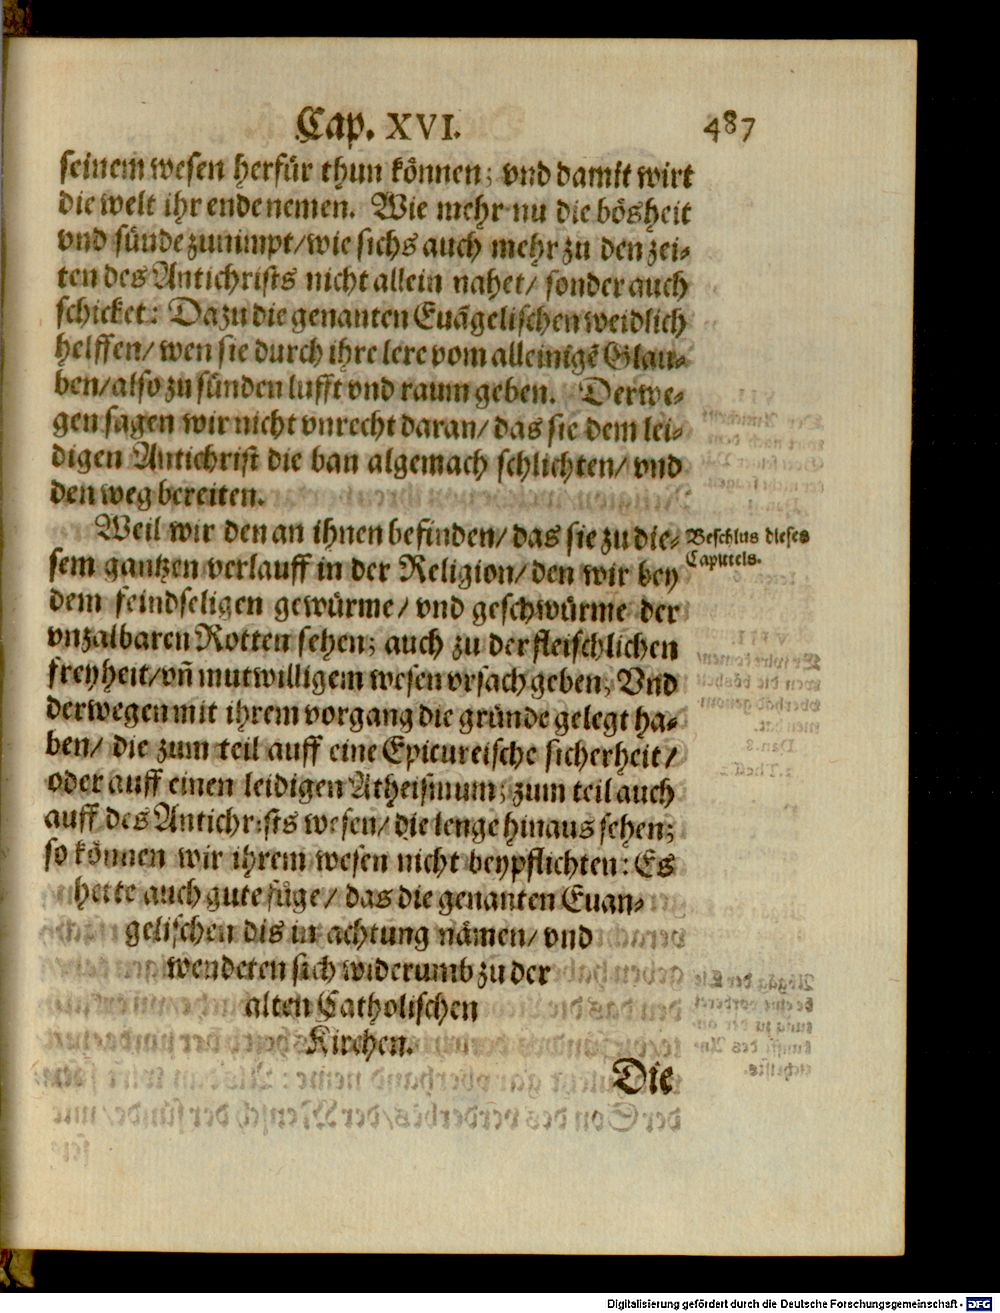 Cap. XVI. 487
seinem wesen herfür thun können; vnd damit wirt
die welt ihr ende nemen. Wie mehr nu die bösheit
vnd sünde zunimpt/ wie sichs auch mehr zu den zei-
ten des Antichrists nicht allein nahet/ sonder auch
schicket: Dazu die genanten Euāgelischen weidlich
helffen/ wen sie durch ihre lere vom alleinigē Glau-
ben/ also zu sünden lufft vnd raum geben. Derwe-
gen sagen wir nicht vnrecht daran/ das sie dem lei-
digen Antichrist die ban algemach schlichten/ vnd
den weg bereiten.
Weil wir den an ihnen befinden/ das sie zu die-
Beschlus dieses
Capittels.
sem gantzen verlauff in der Religion/ den wir bey
dem feindseligen gewürme/ vnd geschwürme der
vnzalbaren Rotten sehen; auch zu der fleischlichen
freyheit/ vñ mutwilligem wesen vrsach geben; Vnd
derwegen mit ihrem vorgang die gründe gelegt ha-
ben/ die zum teil auff eine Epicureische sicherheit/
oder auff einen leidigen Atheismum; zum teil auch
auff des Antichrists wesen/ die lenge hinaus sehen;
so können wir ihrem wesen nicht beypflichten: Es
hette auch gute füge/ das die genanten Euan-
gelischen dis in achtung nämen/ vnd
wendeten sich widerumb zu der
alten Catholischen
Kirchen.
Die
Digitalisierung gefördert durch die Deutsche Forschungsgemeinschaft - DFG